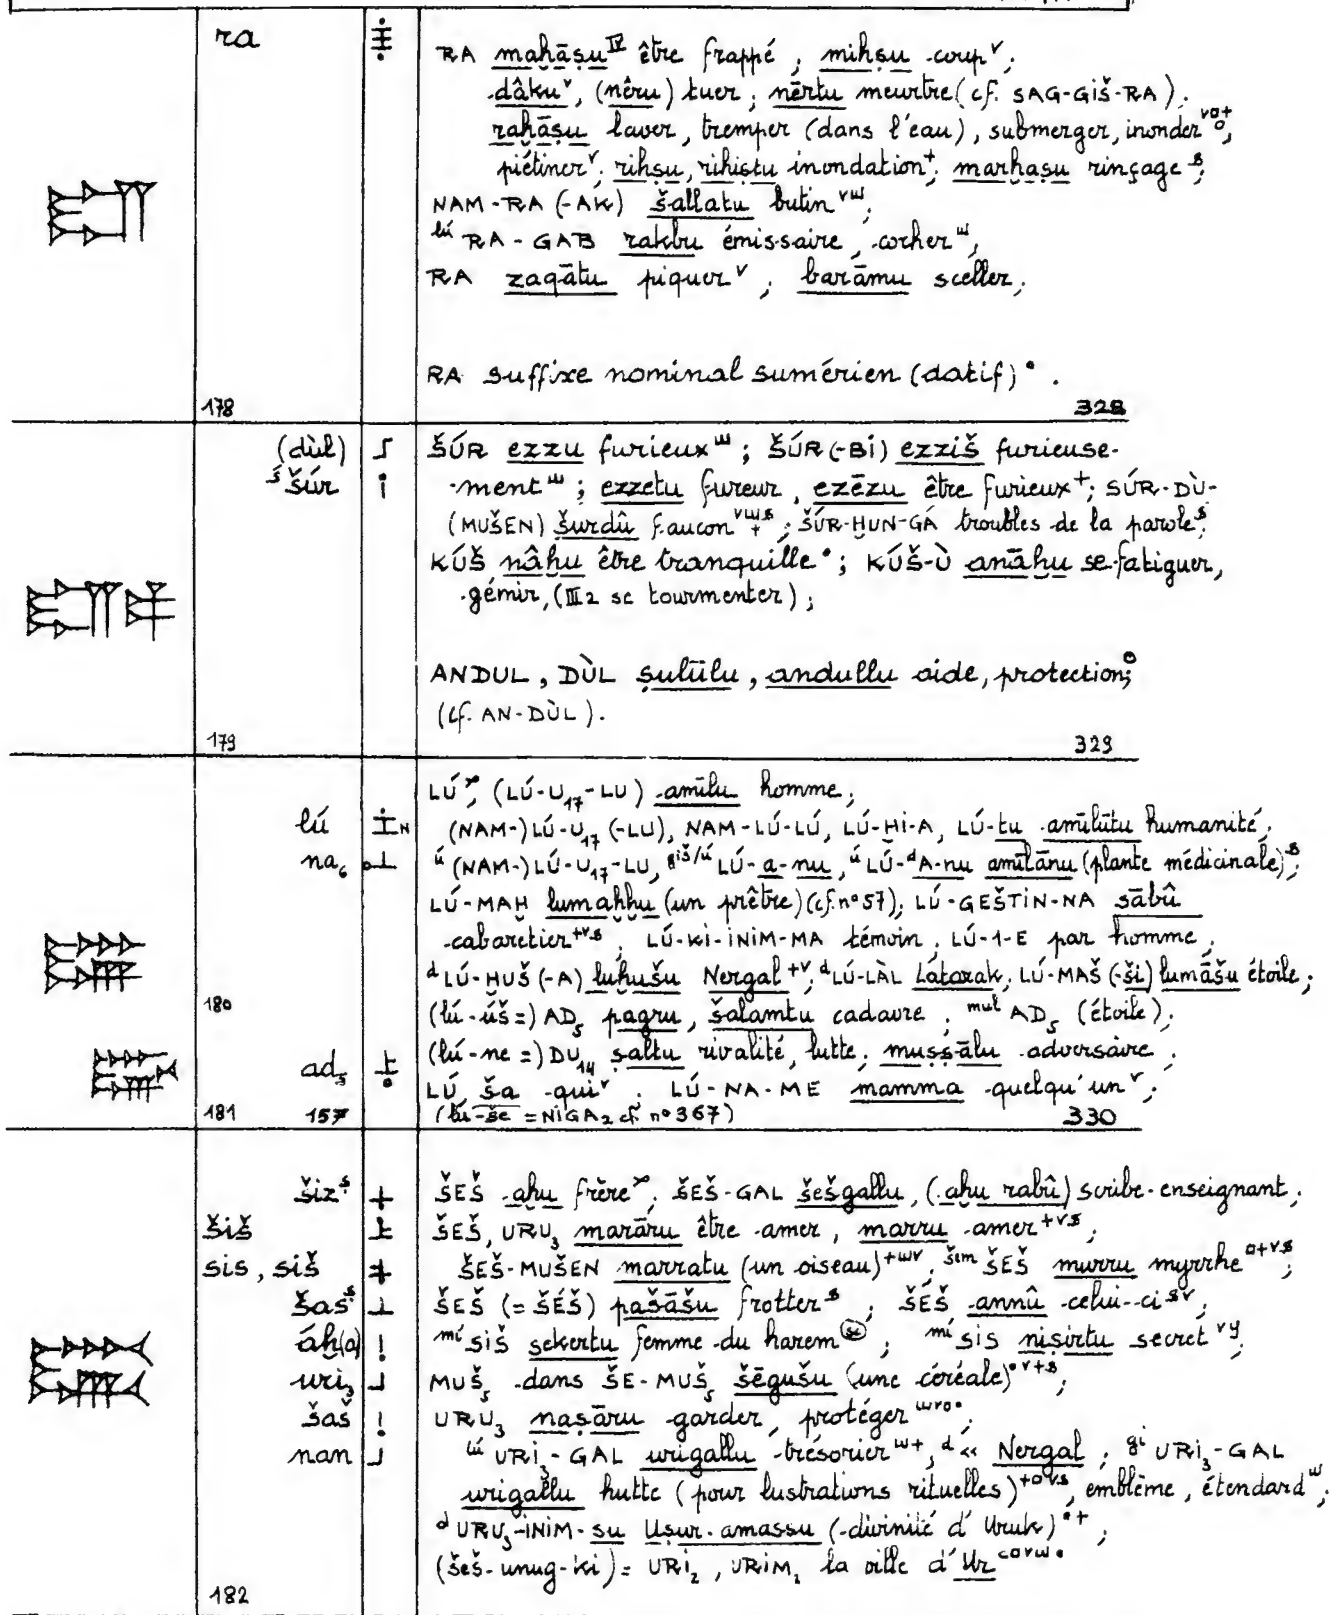 ra RA maḫāṣu IV être frappé, miḫṣu coup v;
dâku v, (nêru) tuer; nērtu meurtre (cf. SAG-GIŠ-RA).
raḫāṣu laver, tremper (dans l'eau), submerger, inonder vo+o,
piétiner v; riḫṣu, riḫiṣtu inondation +; marḫaṣu rinçage s;
NAM-RA (-AK) šallatu butin vw;
lú RA-GAB rakbu émissaire, cocher w,
RA zaqātu piquer v; barāmu sceller;
RA suffixe nominal sumérien (datif) •.
178 328
(dùl) ŠÚR ezzu furieux w; ŠÚR (-BI) ezziš furieuse-
s šúr ment w; ezzetu fureur, ezēzu être furieux +; SÚR-DÙ-
(MUŠEN) šurdû faucon vws+; ŠÚR-ḪUN-GÁ troubles de la parole s;
KÚŠ nâḫu être tranquille •; KÚŠ-Ù anāḫu se fatiguer,
gémir, (III2 se tourmenter);
ANDUL, DÙL ṣulūlu, andullu aide, protection;
(cf. AN-DÙL).
179 329
LÚ x, (LÚ-U17-LU) amīlu homme;
lú N (NAM-)LÚ-U17 (-LU), NAM-LÚ-LÚ, LÚ-ḪI-A, LÚ-tu amīlūtu humanité;
na6 ú (NAM-)LÚ-U17-LU, giš/ú LÚ-a-nu, ú LÚ-d A-nu amīlānu (plante médicinale) s;
LÚ-MAḪ lumaḫḫu (un prêtre) (cf. n° 57); LÚ-GEŠTIN-NA sābû
cabaretier +vs; LÚ-KI-INIM-MA témoin, LÚ-1-E par homme,
d LÚ-ḪUŠ (-A) luḫušu Nergal +v; d LÚ-LÀL Lātarak, LÚ-MAŠ (-ši) lumāšu étoile;
180 (lú-úš=) AD5 pagru, šalamtu cadavre; mul AD5 (étoile);
ad5 (lú-ne =) DU14 ṣaltu rivalité, lutte; muṣṣālu adversaire,
LÚ ša qui v. LÚ-NA-ME mamma quelqu'un v;
181 157 (lú-še = NIGA2 cf. n° 367) 330
šiz s ŠEŠ aḫu frère x; ŠEŠ-GAL šešgallu, (aḫu rabû) scribe-enseignant;
šiš ŠEŠ, URU3 marāru être amer, marru amer +vs;
sis, siš ŠEŠ-MUŠEN marratu (un oiseau) +wv, šim ŠEŠ murru myrrhe o+vs;
šaš s ŠEŠ (= ŠÉŠ) pašāšu frotter s; ŠEŠ annû celui-ci sv;
áḫ(a) mí SIŠ sekertu femme du harem; mí sis niṣirtu secret vy;
uri3 MUŠ5 dans ŠE-MUŠ5 šēgušu (une céréale) •v+s;
šaš URU3 naṣāru garder, protéger wvo•;
nan lú URI3-GAL urigallu trésorier w+, d « Nergal; gi URI3-GAL
urigallu hutte (pour lustrations rituelles) +ovs, emblème, étendard w;
d URU3-INIM-su Uṣur-amassu (divinité d'Uruk) •+;
(šeš-unug-ki) = URI2, URIM2 la ville d'Ur covw•
182